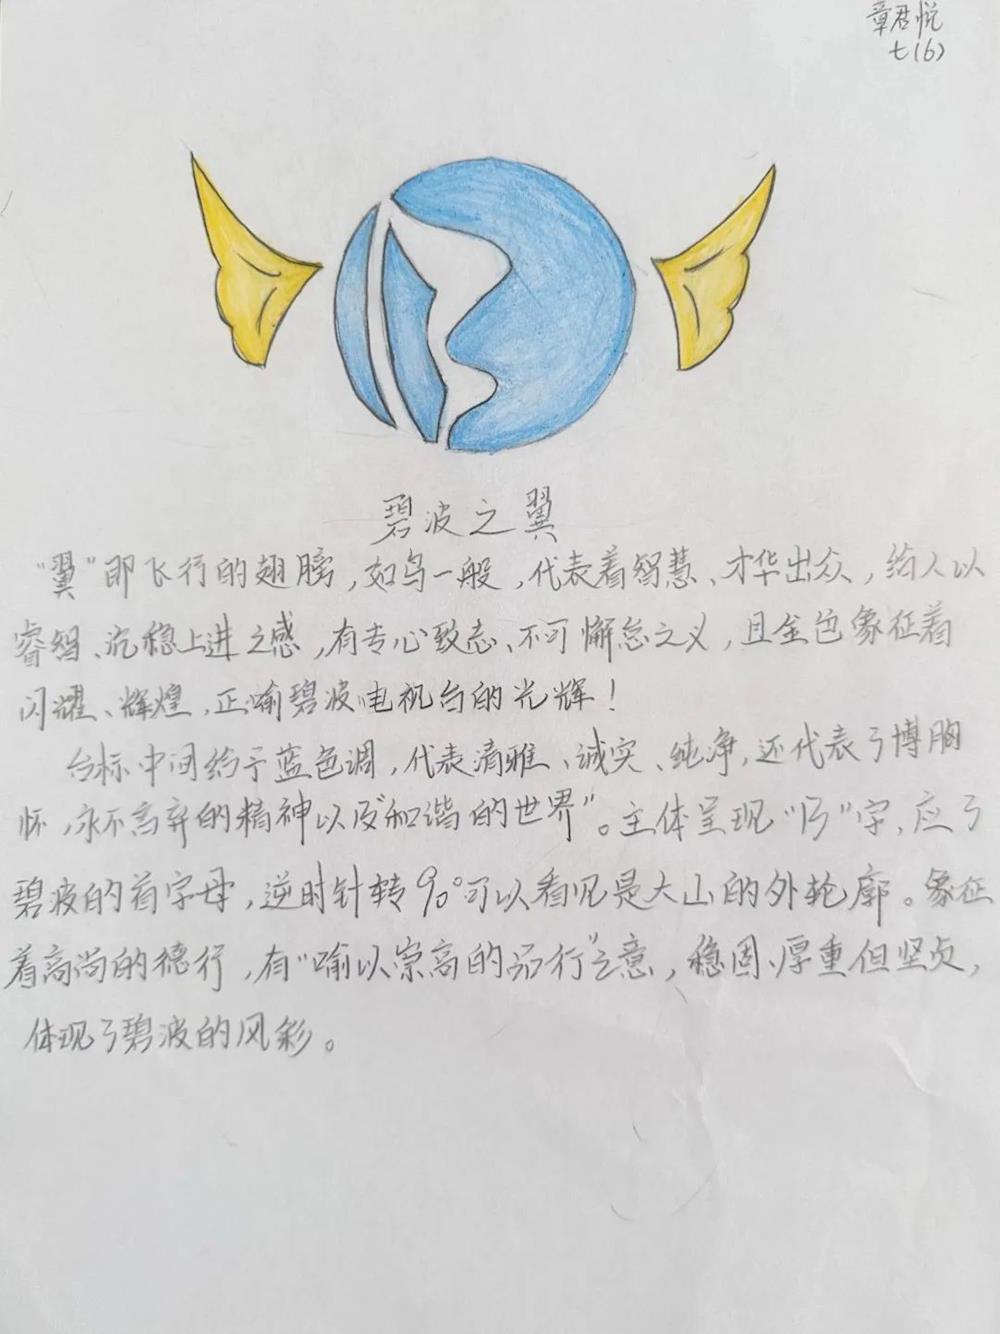 章君悦
七(6)
碧波之翼
"翼"即飞行的翅膀,如鸟一般,代表着智慧、才华出众,给人以
睿智、沉稳上进之感,有专心致志、不可懈怠之义,且金色象征着
闪耀、辉煌,正喻碧波电视台的光辉!
台标中间给于蓝色调,代表清雅、诚实、纯净,还代表了博胸
怀,永不离弃的精神以及"和谐的世界"。主体呈现"B"字,应了
碧波的首字母,逆时针转90°可以看见是大山的外轮廓。象征
着高尚的德行,有"喻以崇高的品行"之意,稳固、厚重但坚贞,
体现了碧波的风彩。